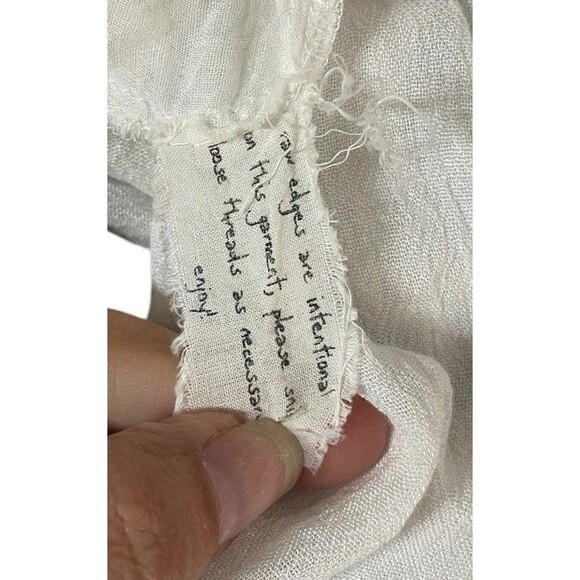 raw edges are intentional
on this garment, please sni
loose threads as necessar
enjoy!